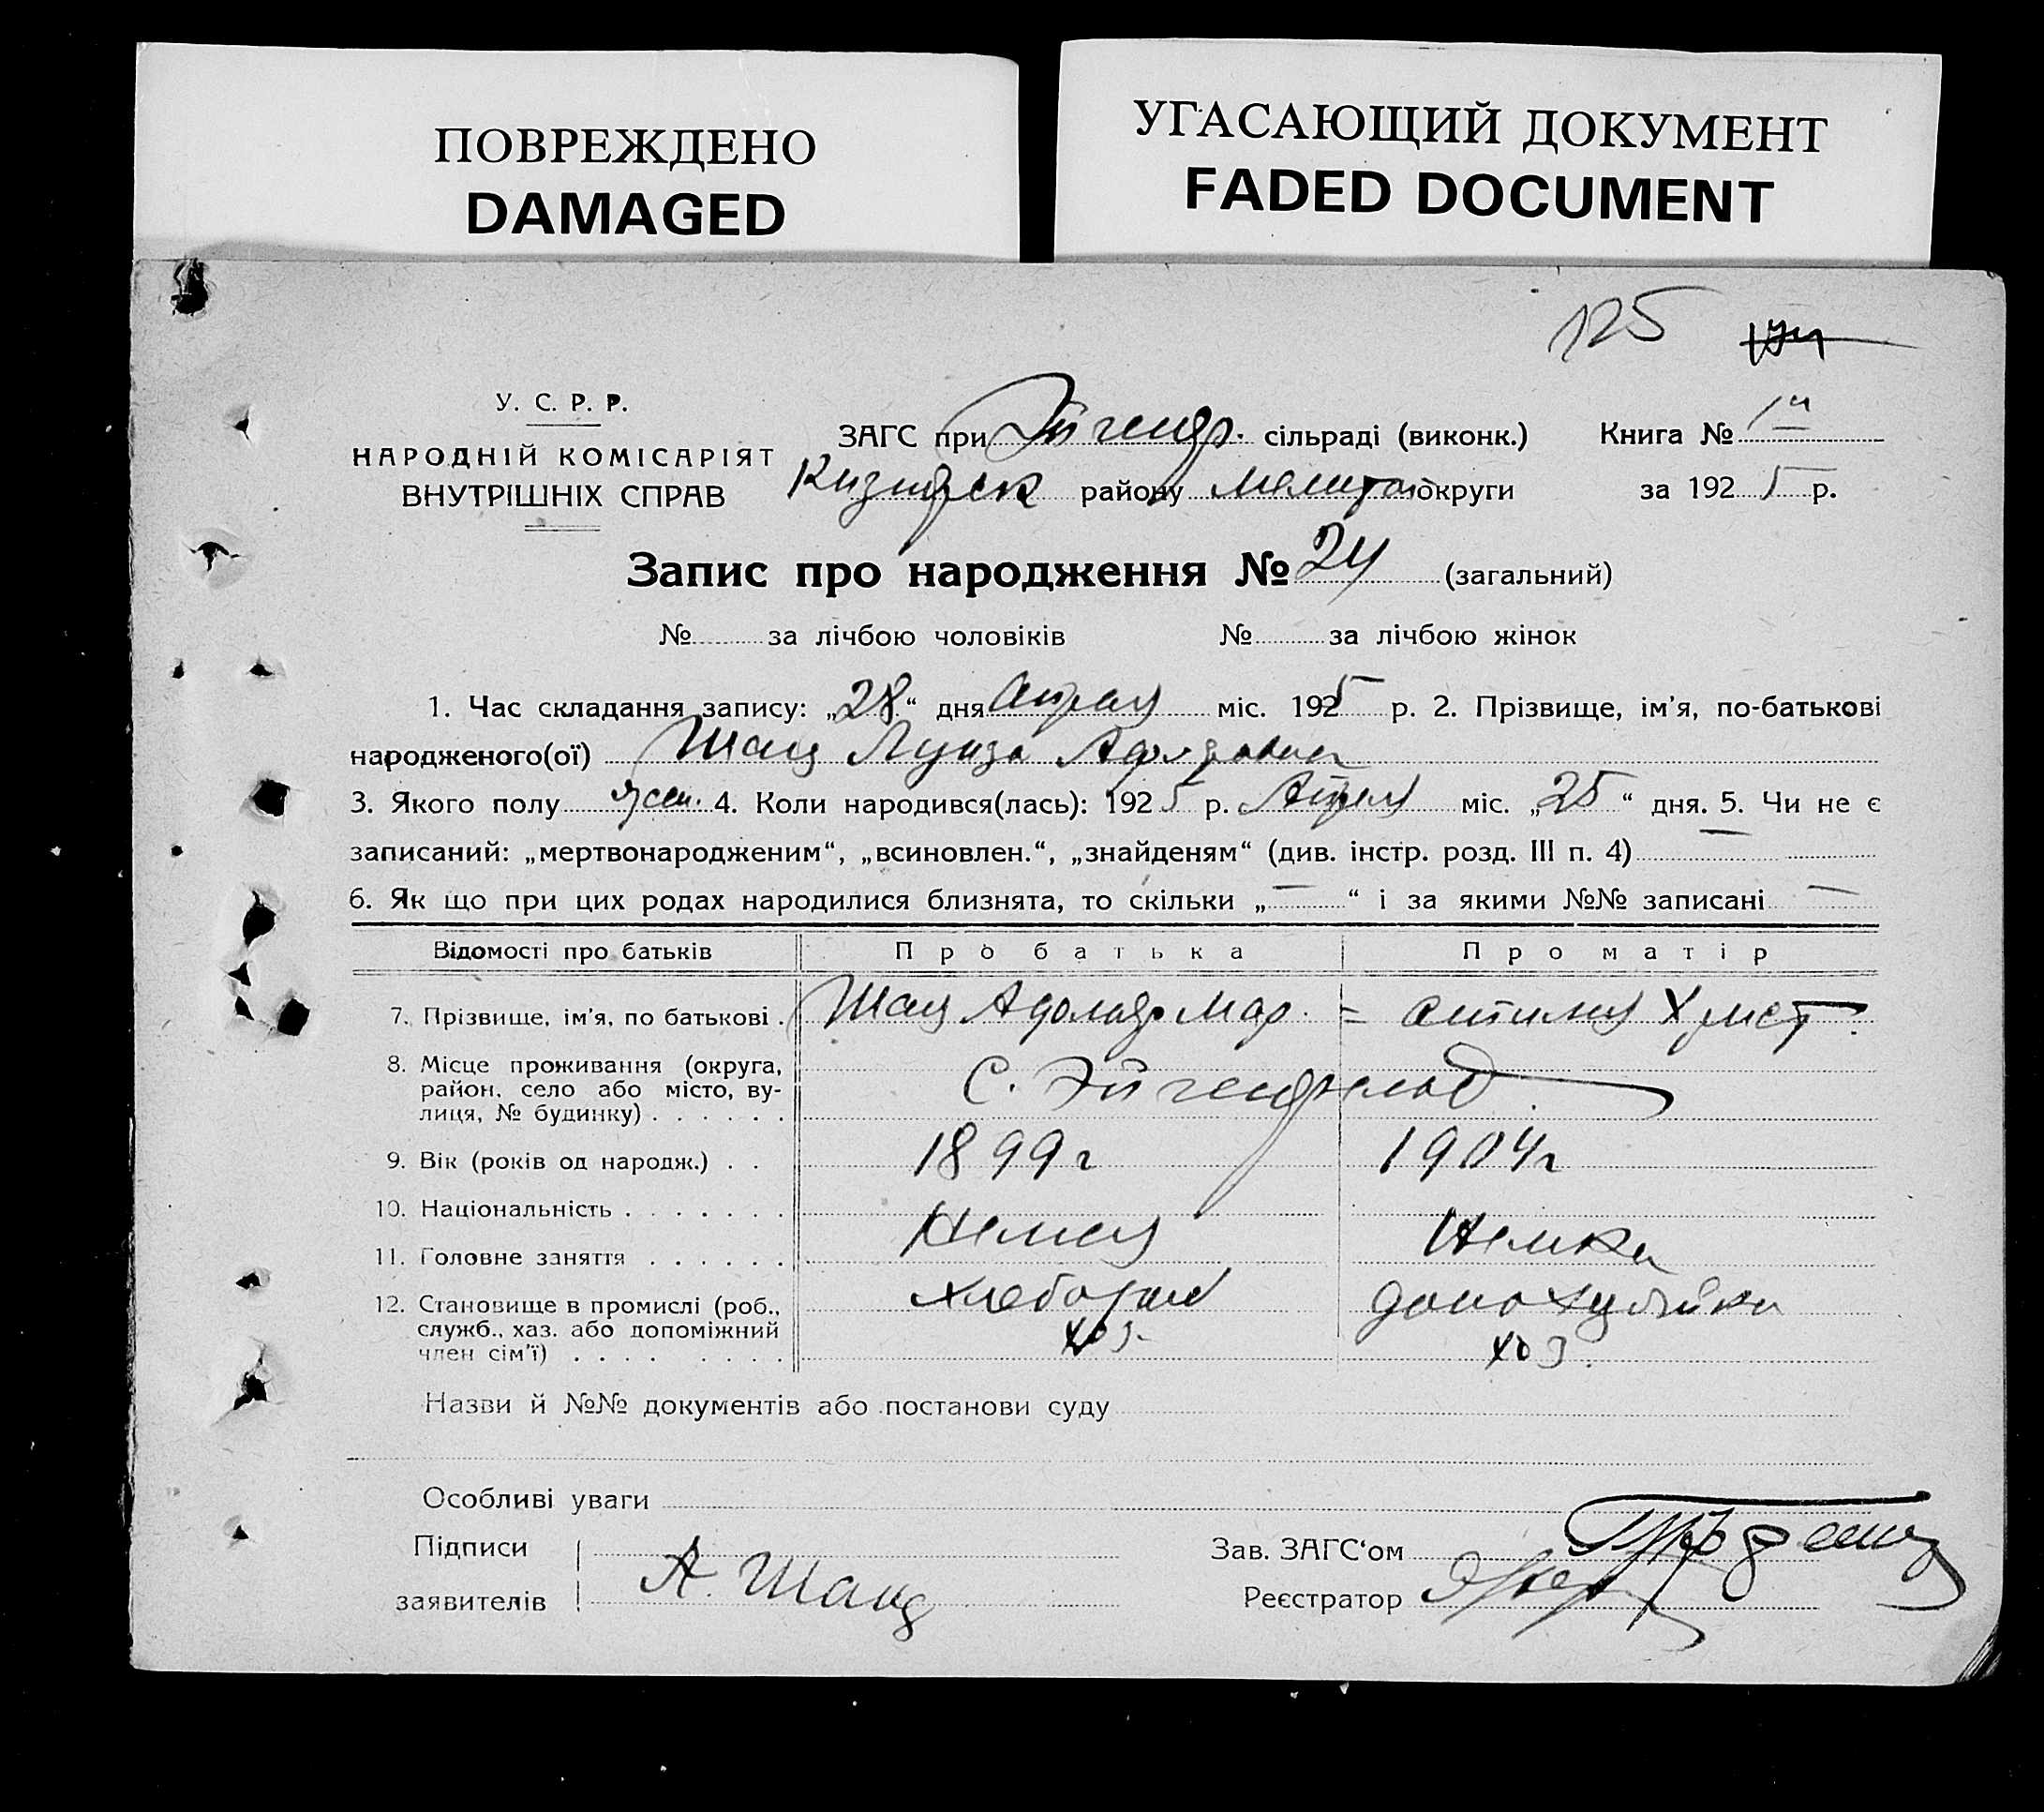 ПОВРЕЖДЕНО
DAMAGED
УГАСАЮЩИЙ ДОКУМЕНТ
FADED DOCUMENT
125
У. С. Р. Р.
НАРОДНІЙ КОМІСАРІЯТ
ВНУТРІШНІХ СПРАВ
ЗАГС при Эйгенф. сільраді (виконк.)
района Мелитоп округи
Книга № 1й
за 1925 р.
Запис про народження № 24 (загальний)
№ за лічбою чоловіків № за лічбою жінок
1. Час складання запису: „28“ дня Апреля міс. 1925 р. 2. Прізвище, ім'я, по-батькові
народженого(ої) Шанц Луиза Адольфовна
3. Якого полу жен. 4. Коли народився(лась): 1925 р. Апреля міс. „25“ дня. 5. Чи не є
записаний: „мертвонародженим“, „всиновлен.“, „знайденям“ (див. інстр. розд. III п. 4) —
6. Як що при цих родах народилися близнята, то скільки „—“ і за якими №№ записані —
Відомості про батьків Про батька Про матір
7. Прізвище, ім'я, по батькові . Шанц Адольф Мар. = Отилия Христ.
8. Місце проживання (округа,
район, село або місто, ву-
лиця, № будинку) . . . . . . С. Эйгенфельд
9. Вік (років од народж.) . . 1899г 1904г
10. Національність . . . . . . . Немец Немка
11. Головне заняття . . . . . . хлебороб домохозяйка
12. Становище в промислі (роб.,
служб., хаз. або допоміжний
член сім'ї) . . . . . . . . хоз. хоз.
Назви й №№ документів або постанови суду
Особливі уваги
Підписи
заявителів А. Шанц
Зав. ЗАГС‘ом
Реєстратор